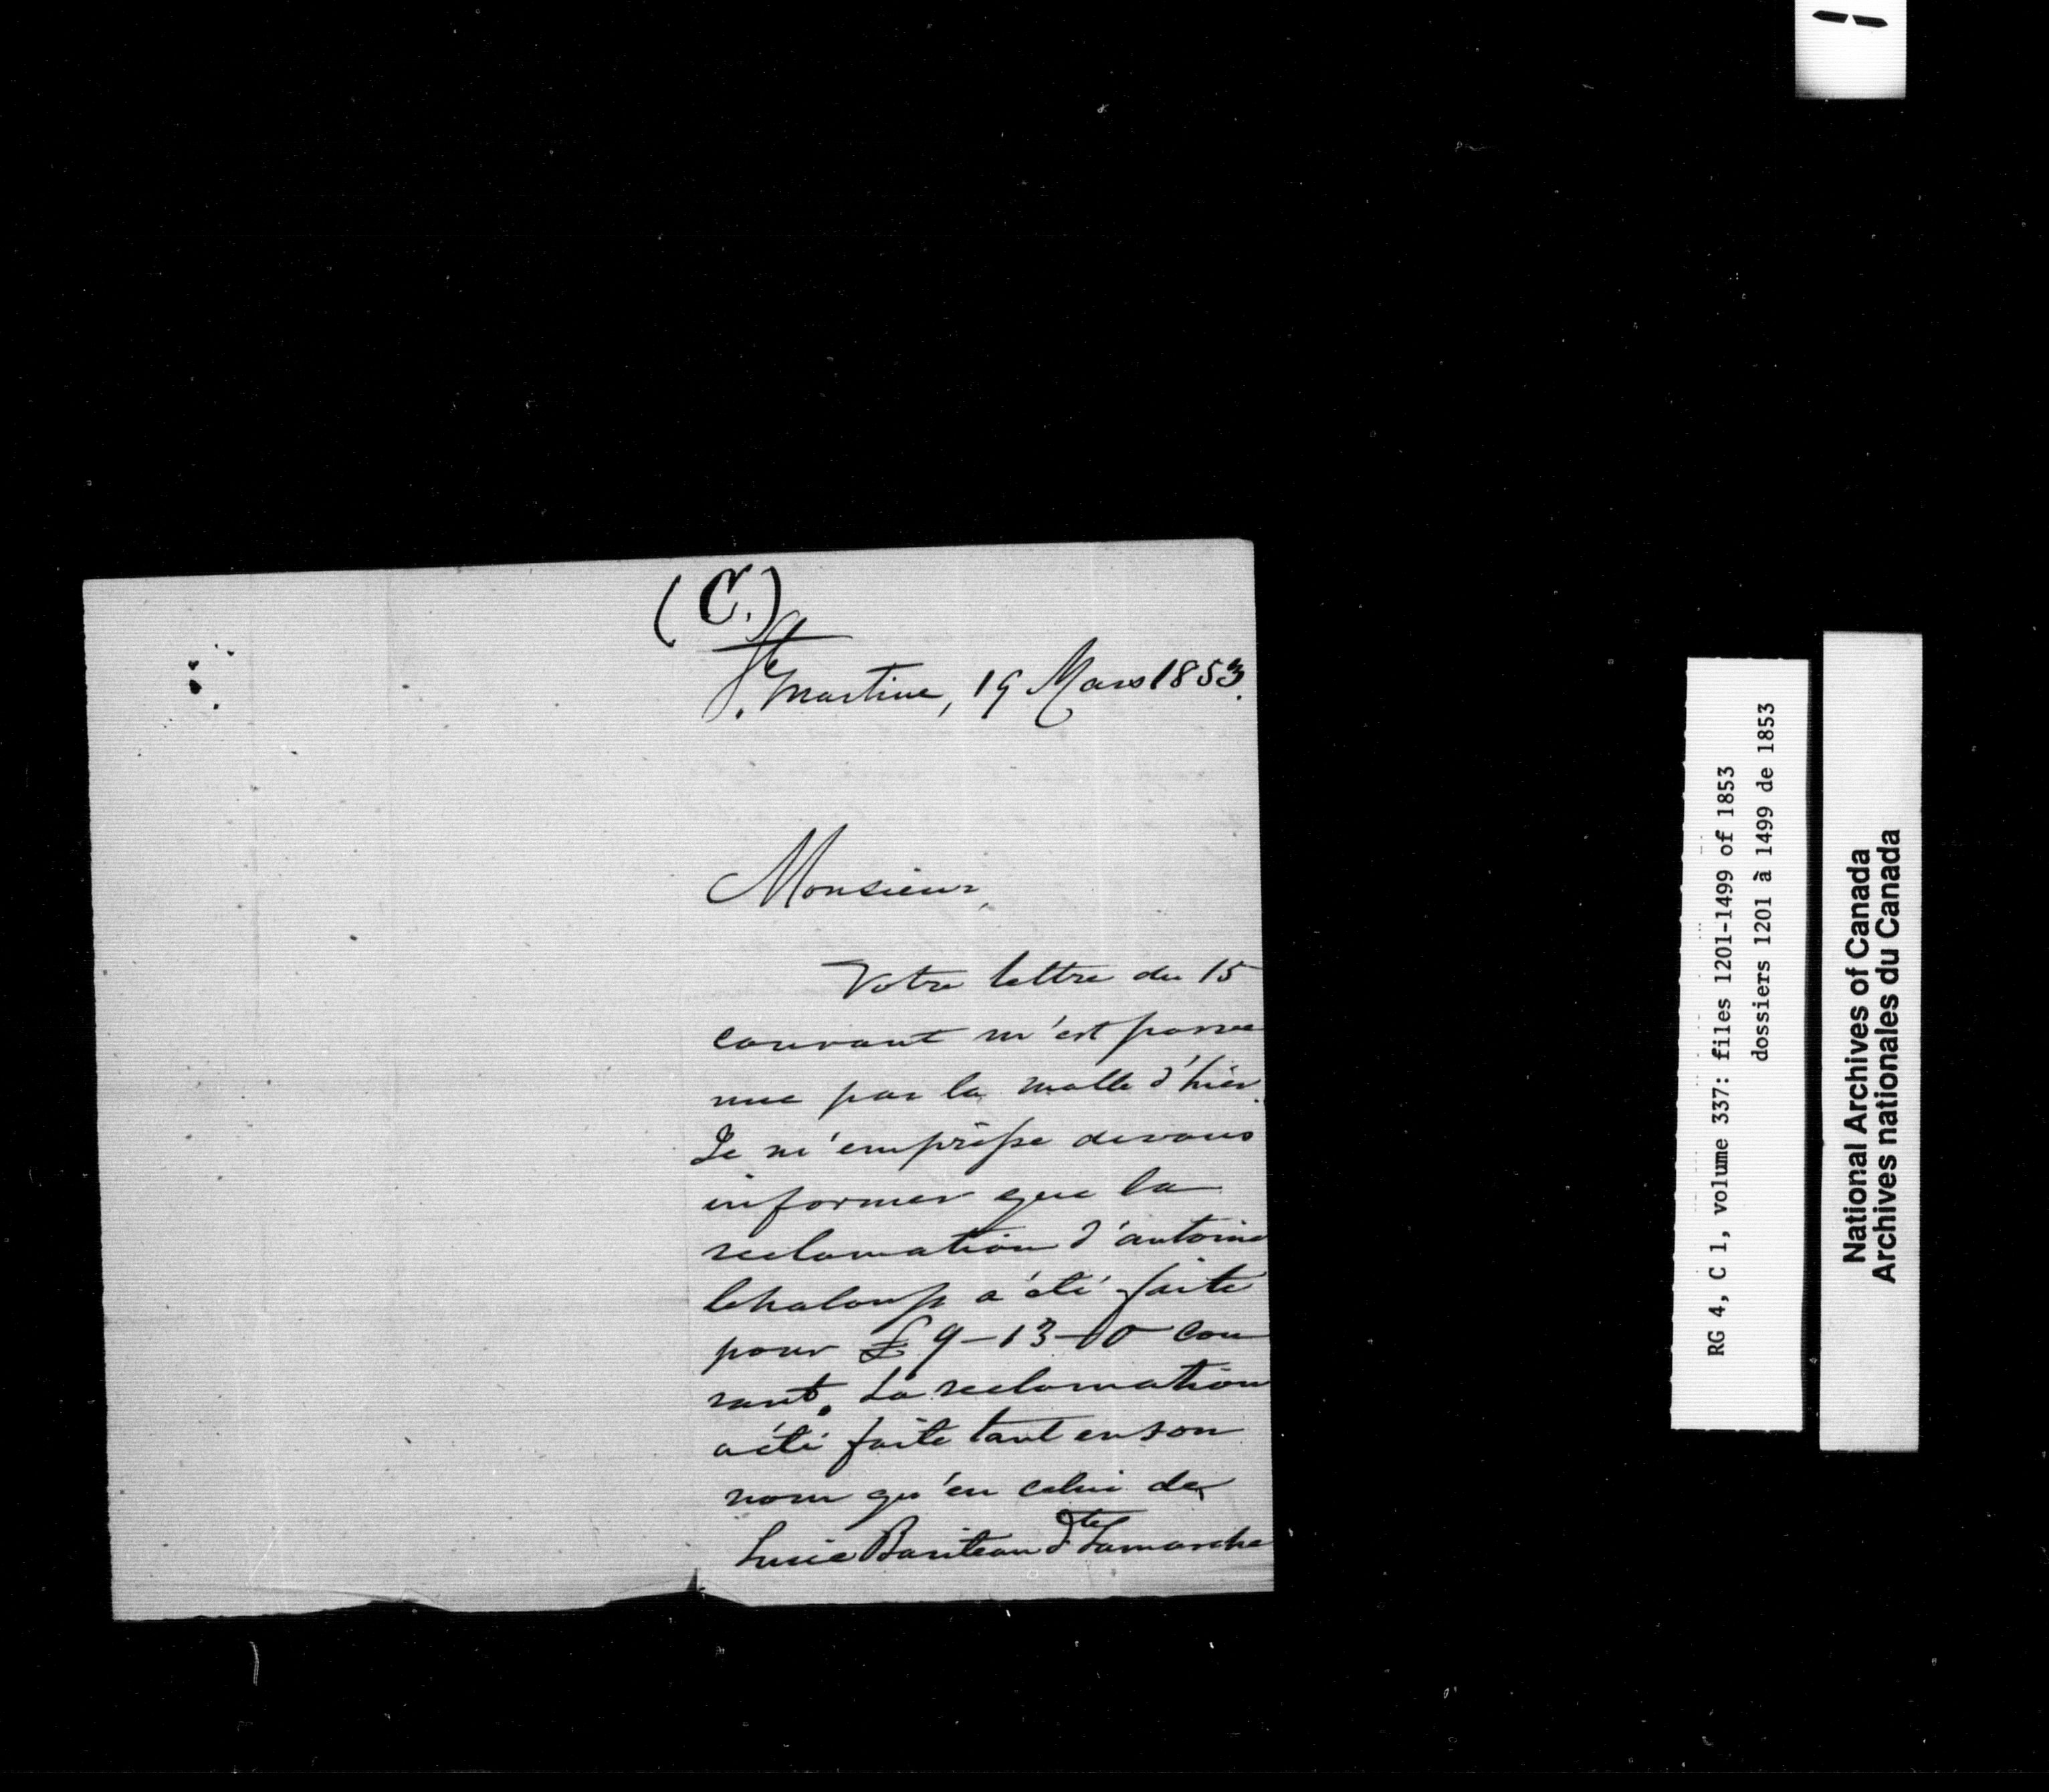 (C.)
Ste Martine, 19 Mars 1853.
Monsieur,
Votre lettre du 15
courant m'est parve
nue par la malle d'hier.
Je m'empresse de vous
informer que la
reclamation d'antoine
lehaloup a été faite
pour £ 9-13-0 cou
rant. La reclamation
a été faite tant en son
nom qu'en celui de
Lucie Bariteau dte Lamarche
RG 4, C 1, volume 337: files 1201-1499 of 1853
dossiers 1201 à 1499 de 1853
National Archives of Canada
Archives nationales du Canada